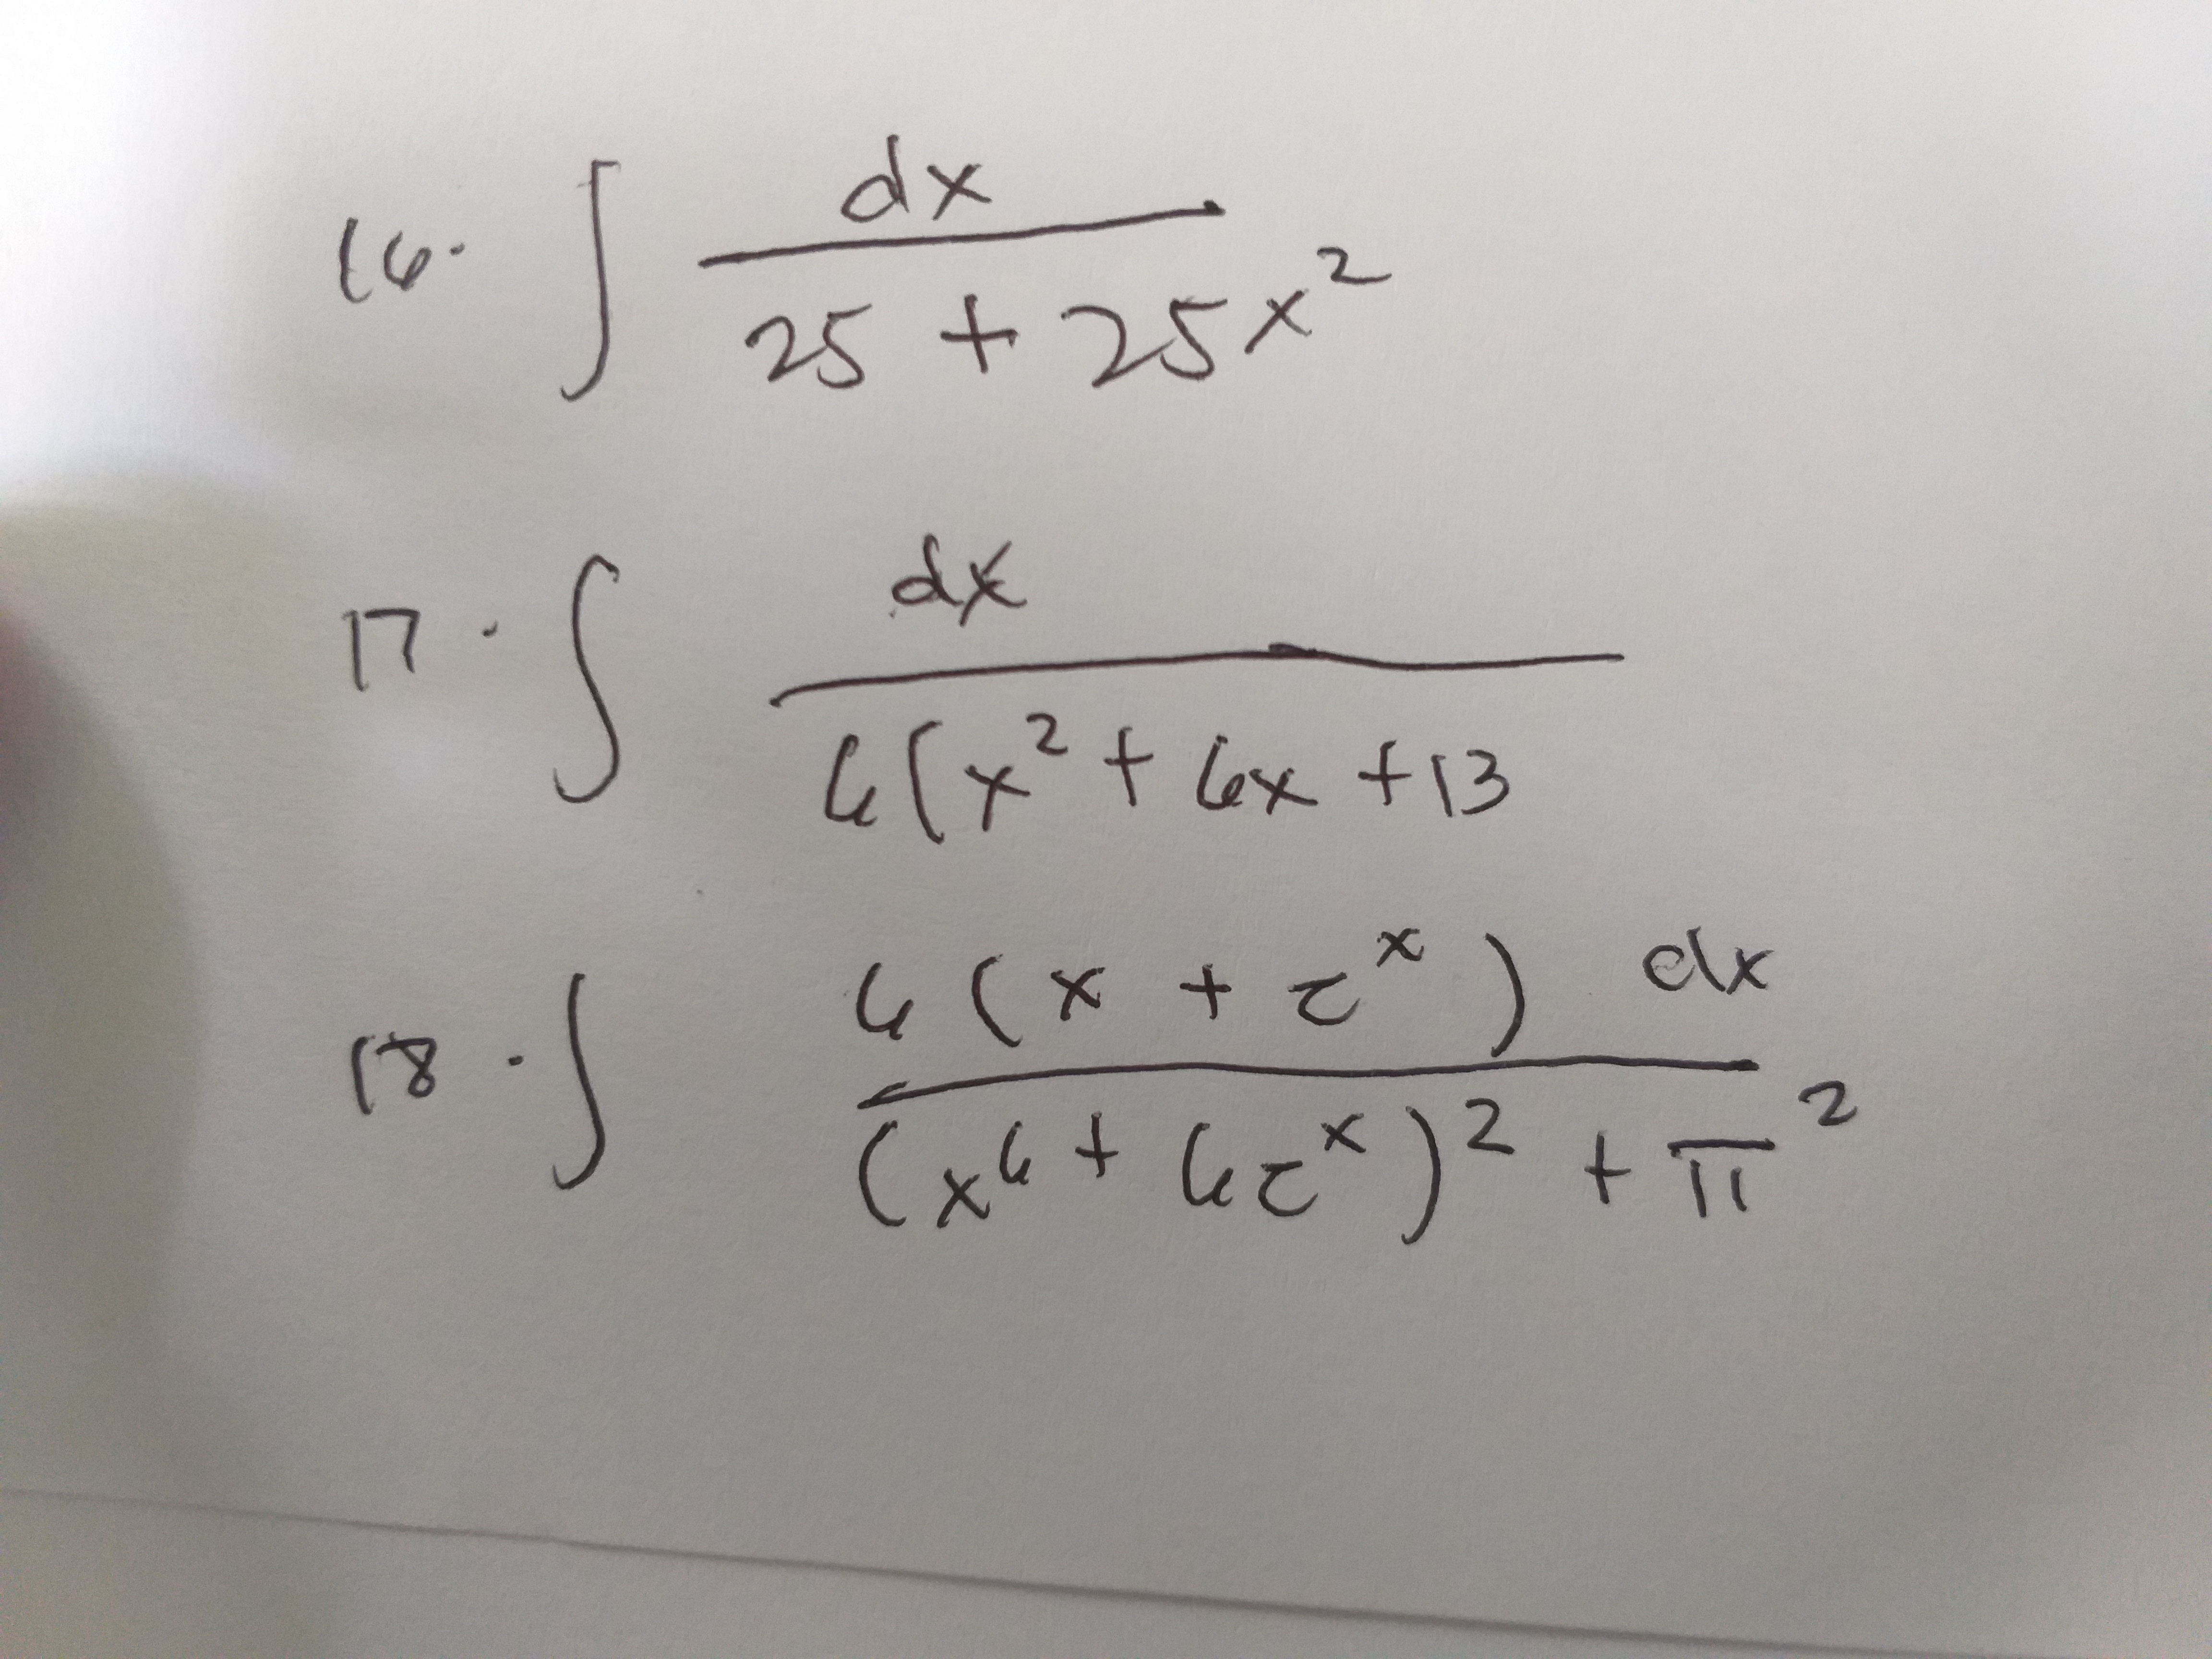 16. ∫ dx / 25 + 25x²
17. ∫ dx / 6(x² + 6x + 13
18. ∫ 6(x + e^x) dx / (x⁶ + 6e^x)² + π²